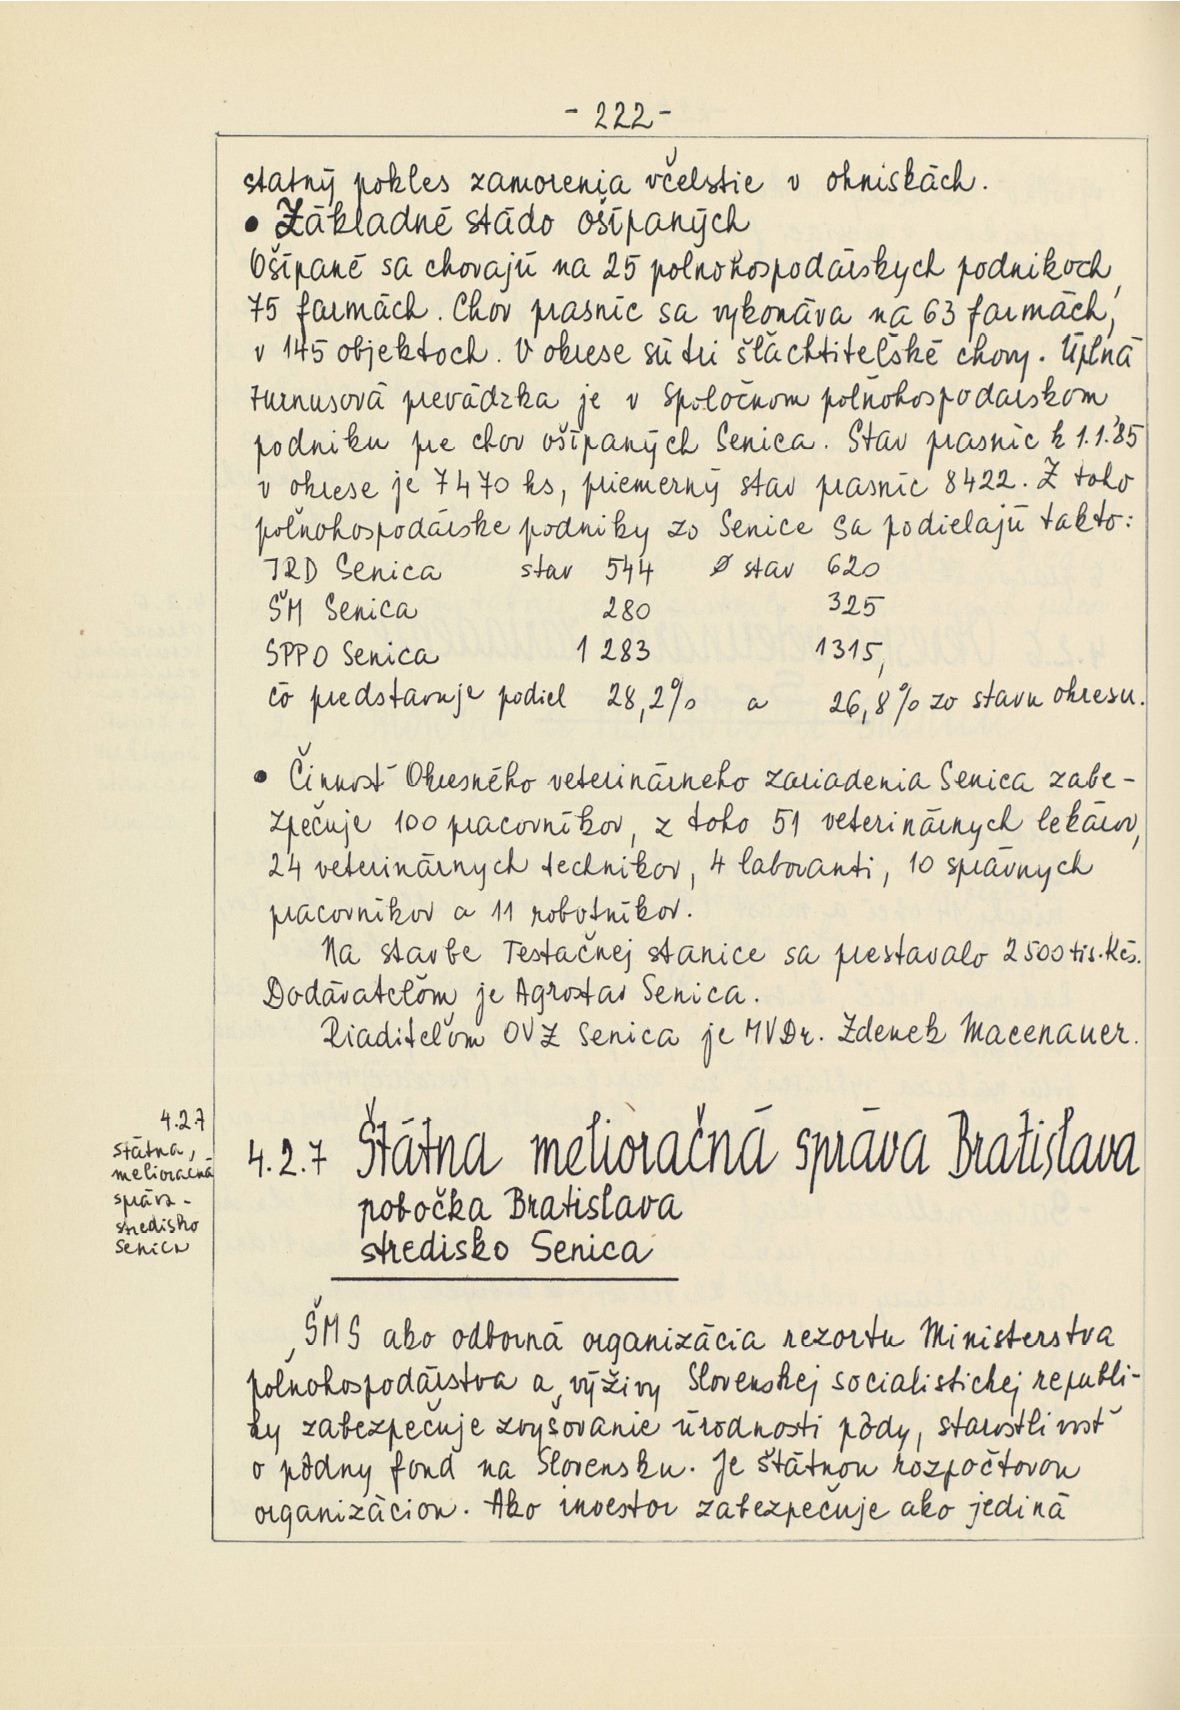 - 222 -
statný pokles zamorenia včelstie v ohniskách.
• Základné stádo ošípaných
Ošípané sa chovajú na 25 polnohospodárskych podnikoch,
75 farmách. Chov prasníc sa vykonáva na 63 farmách,
v 145 objektoch. V okrese sú tri šlächtiteľské chovy. Úplná
turnusová prevádzka je v Spoločnom poľnohospodarskom
podniku pre chov ošípaných Senica. Stav prasníc k 1.1.'85
v okrese je 7470 ks, priemerný stav prasníc 8422. Z toho
poľnohospodárske podniky zo Senice sa podielajú takto:
JRD Senica stav 544 Ø stav 620
ŠM Senica 280 325
SPPO Senica 1 283 1315,
čo predstavuje podiel 28,2% a 26,8% zo stavu okresu.
• Činnosť Okresného veterinárneho zariadenia Senica zabe-
zpečuje 100 pracovníkov, z toho 51 veterinárnych lekárov,
24 veterinárnych technikov, 4 laboranti, 10 správnych
pracovníkov a 11 robotníkov.
Na stavbe Testačnej stanice sa prestavalo 2 500 tis. Kčs.
Dodávateľom je Agrostav Senica.
Riaditeľom OVZ Senica je MVDr. Zdenek Macenauer.
4.2.7
štátna
melioračná
správa -
stredisko
Senica
4.2.7 Štátna melioračná správa Bratislava
pobočka Bratislava
stredisko Senica
ŠMS ako odborná organizácia rezortu Ministerstva
poľnohospodárstva a výživy Slovenskej socialistickej republi-
ky zabezpečuje zvyšovanie úrodnosti pôdy, starostlivosť
o pôdny fond na Slovensku. Je štátnou rozpočtovou
organizáciou. Ako investor zabezpečuje ako jediná